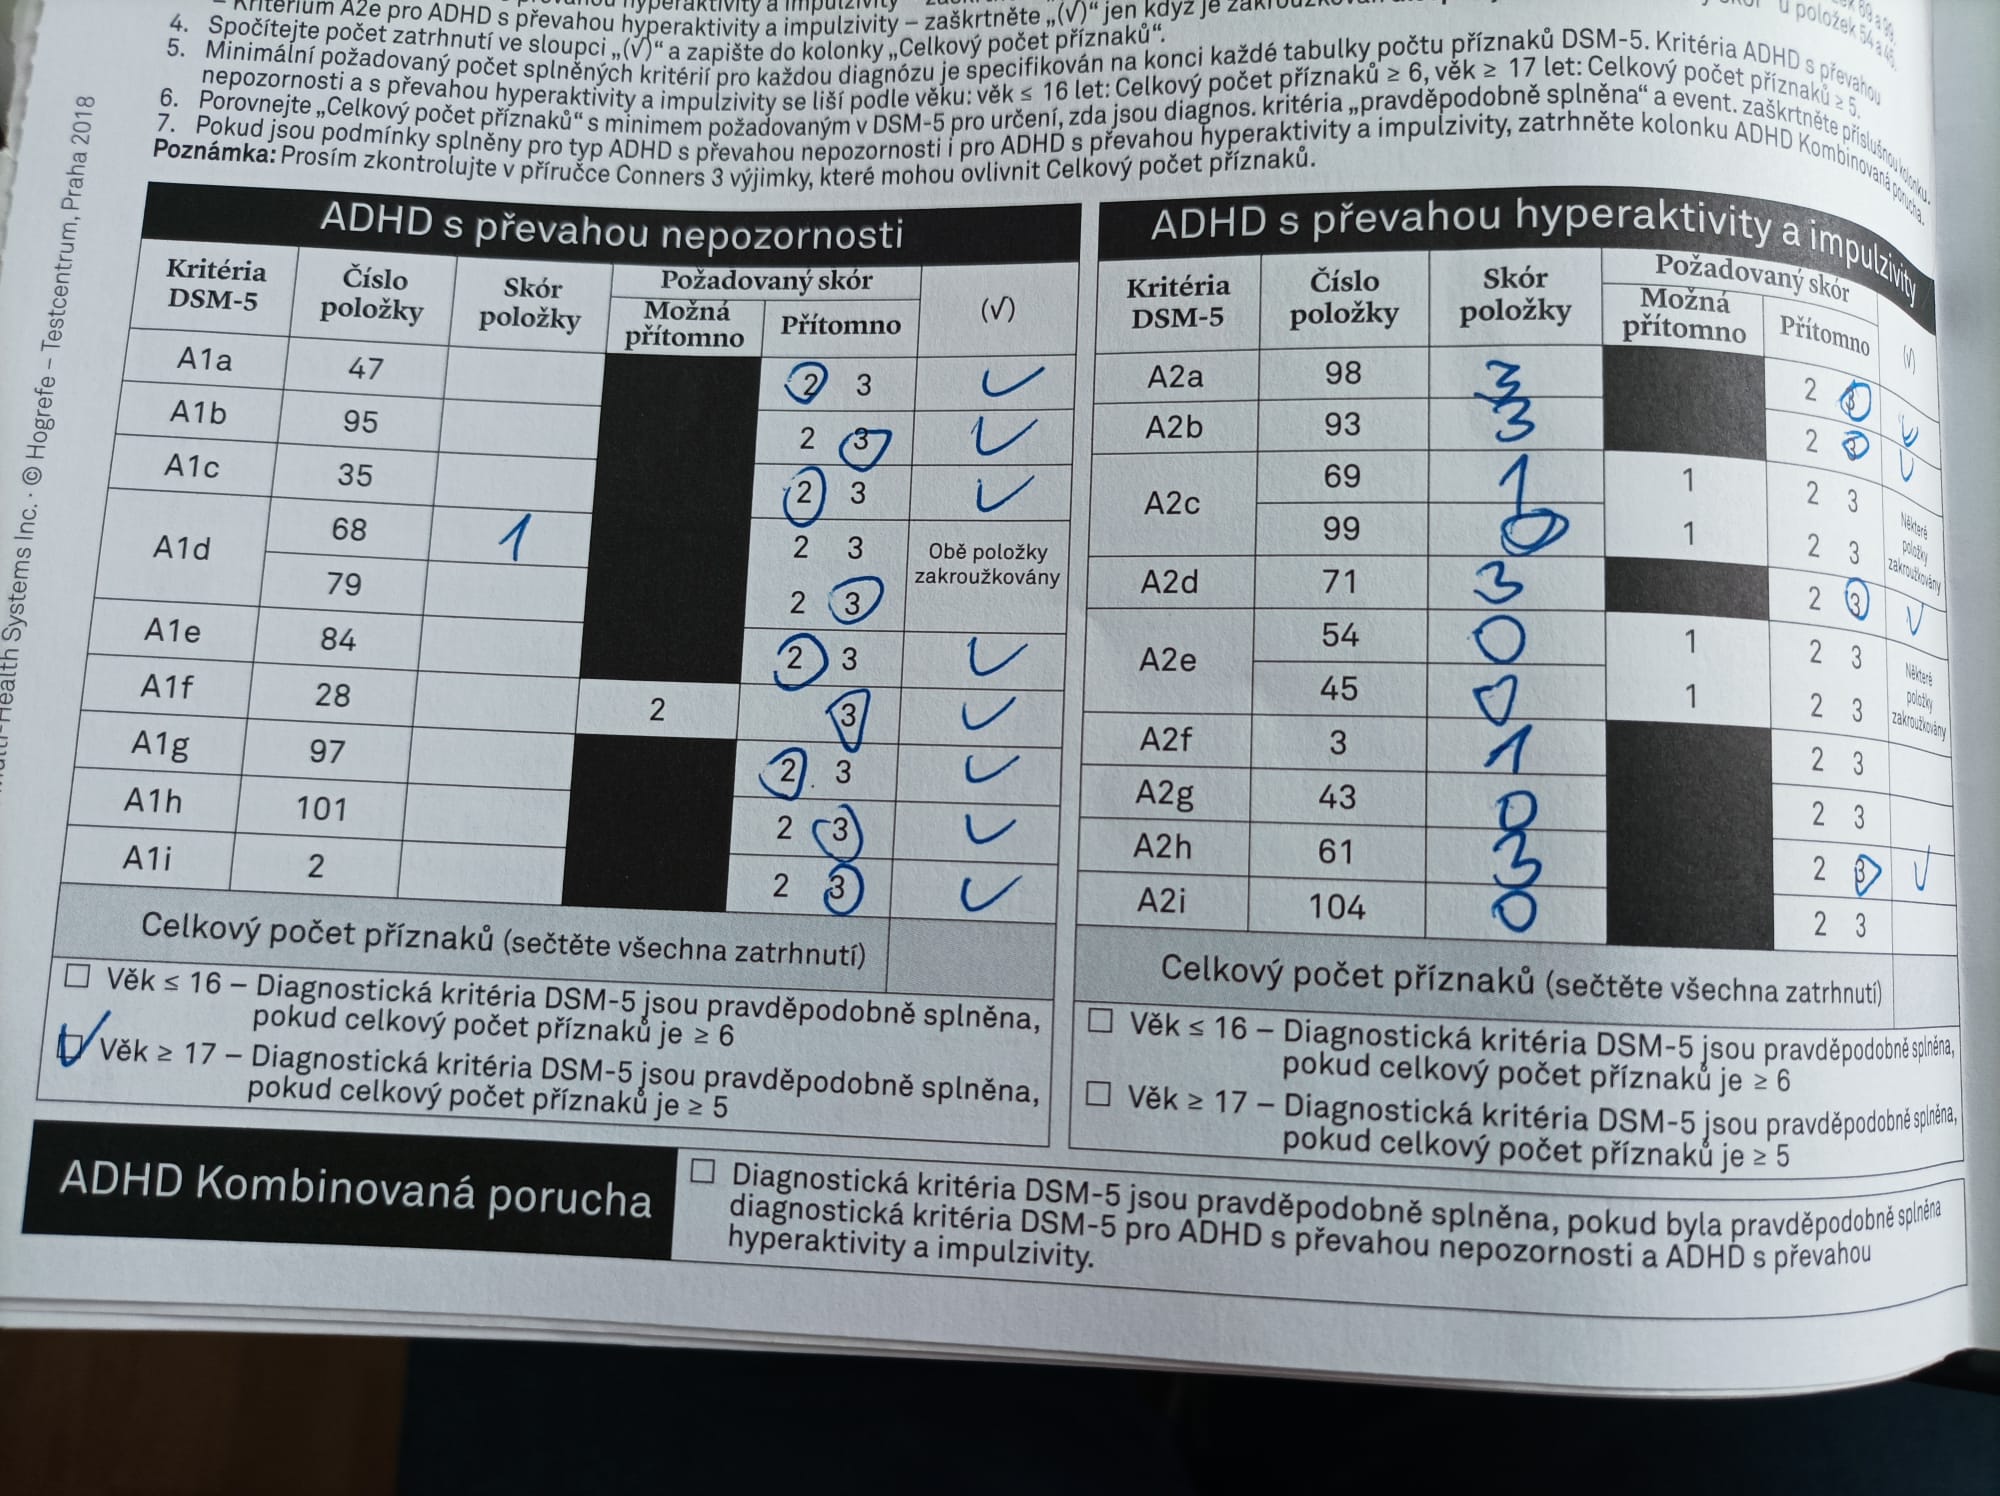 – Kritérium A2e pro ADHD s převahou hyperaktivity a impulzivity – zaškrtněte „(√)“ jen když je
4. Spočítejte počet zatrhnutí ve sloupci „(√)“ a zapište do kolonky „Celkový počet příznaků“.
5. Minimální požadovaný počet splněných kritérií pro každou diagnózu je specifikován na konci každé tabulky počtu příznaků DSM-5. Kritéria ADHD s převahou
nepozornosti a s převahou hyperaktivity a impulzivity se liší podle věku: věk ≤ 16 let: Celkový počet příznaků ≥ 6, věk ≥ 17 let: Celkový počet příznaků ≥ 5.
6. Porovnejte „Celkový počet příznaků“ s minimem požadovaným v DSM-5 pro určení, zda jsou diagnos. kritéria „pravděpodobně splněna“ a event. zaškrtněte příslušnou kolonku.
7. Pokud jsou podmínky splněny pro typ ADHD s převahou nepozornosti i pro ADHD s převahou hyperaktivity a impulzivity, zatrhněte kolonku ADHD Kombinovaná porucha.
Poznámka: Prosím zkontrolujte v příručce Conners 3 výjimky, které mohou ovlivnit Celkový počet příznaků.
Health Systems Inc. · © Hogrefe – Testcentrum, Praha 2018
ADHD s převahou nepozornosti
Kritéria DSM-5 Číslo položky Skór položky Požadovaný skór (√)
Možná přítomno Přítomno
A1a 47 2 3 ✓
A1b 95 2 3 ✓
A1c 35 2 3 ✓
A1d 68 1 2 3 Obě položky
79 2 3 zakroužkovány
A1e 84 2 3 ✓
A1f 28 2 3 ✓
A1g 97 2 3 ✓
A1h 101 2 3 ✓
A1i 2 2 3 ✓
Celkový počet příznaků (sečtěte všechna zatrhnutí)
☐ Věk ≤ 16 – Diagnostická kritéria DSM-5 jsou pravděpodobně splněna,
pokud celkový počet příznaků je ≥ 6
☑ Věk ≥ 17 – Diagnostická kritéria DSM-5 jsou pravděpodobně splněna,
pokud celkový počet příznaků je ≥ 5
ADHD s převahou hyperaktivity a impulzivity
Kritéria DSM-5 Číslo položky Skór položky Požadovaný skór (√)
Možná přítomno Přítomno
A2a 98 3 2 3 ✓
A2b 93 3 2 3 ✓
A2c 69 1 1 2 3 Některé položky zakroužkovány
99 0 1 2 3
A2d 71 3 2 3 ✓
A2e 54 0 1 2 3 Některé položky zakroužkovány
45 0 1 2 3
A2f 3 1 2 3
A2g 43 0 2 3
A2h 61 3 2 3 ✓
A2i 104 0 2 3
Celkový počet příznaků (sečtěte všechna zatrhnutí)
☐ Věk ≤ 16 – Diagnostická kritéria DSM-5 jsou pravděpodobně splněna,
pokud celkový počet příznaků je ≥ 6
☐ Věk ≥ 17 – Diagnostická kritéria DSM-5 jsou pravděpodobně splněna,
pokud celkový počet příznaků je ≥ 5
ADHD Kombinovaná porucha
☐ Diagnostická kritéria DSM-5 jsou pravděpodobně splněna, pokud byla pravděpodobně splněna
diagnostická kritéria DSM-5 pro ADHD s převahou nepozornosti a ADHD s převahou
hyperaktivity a impulzivity.